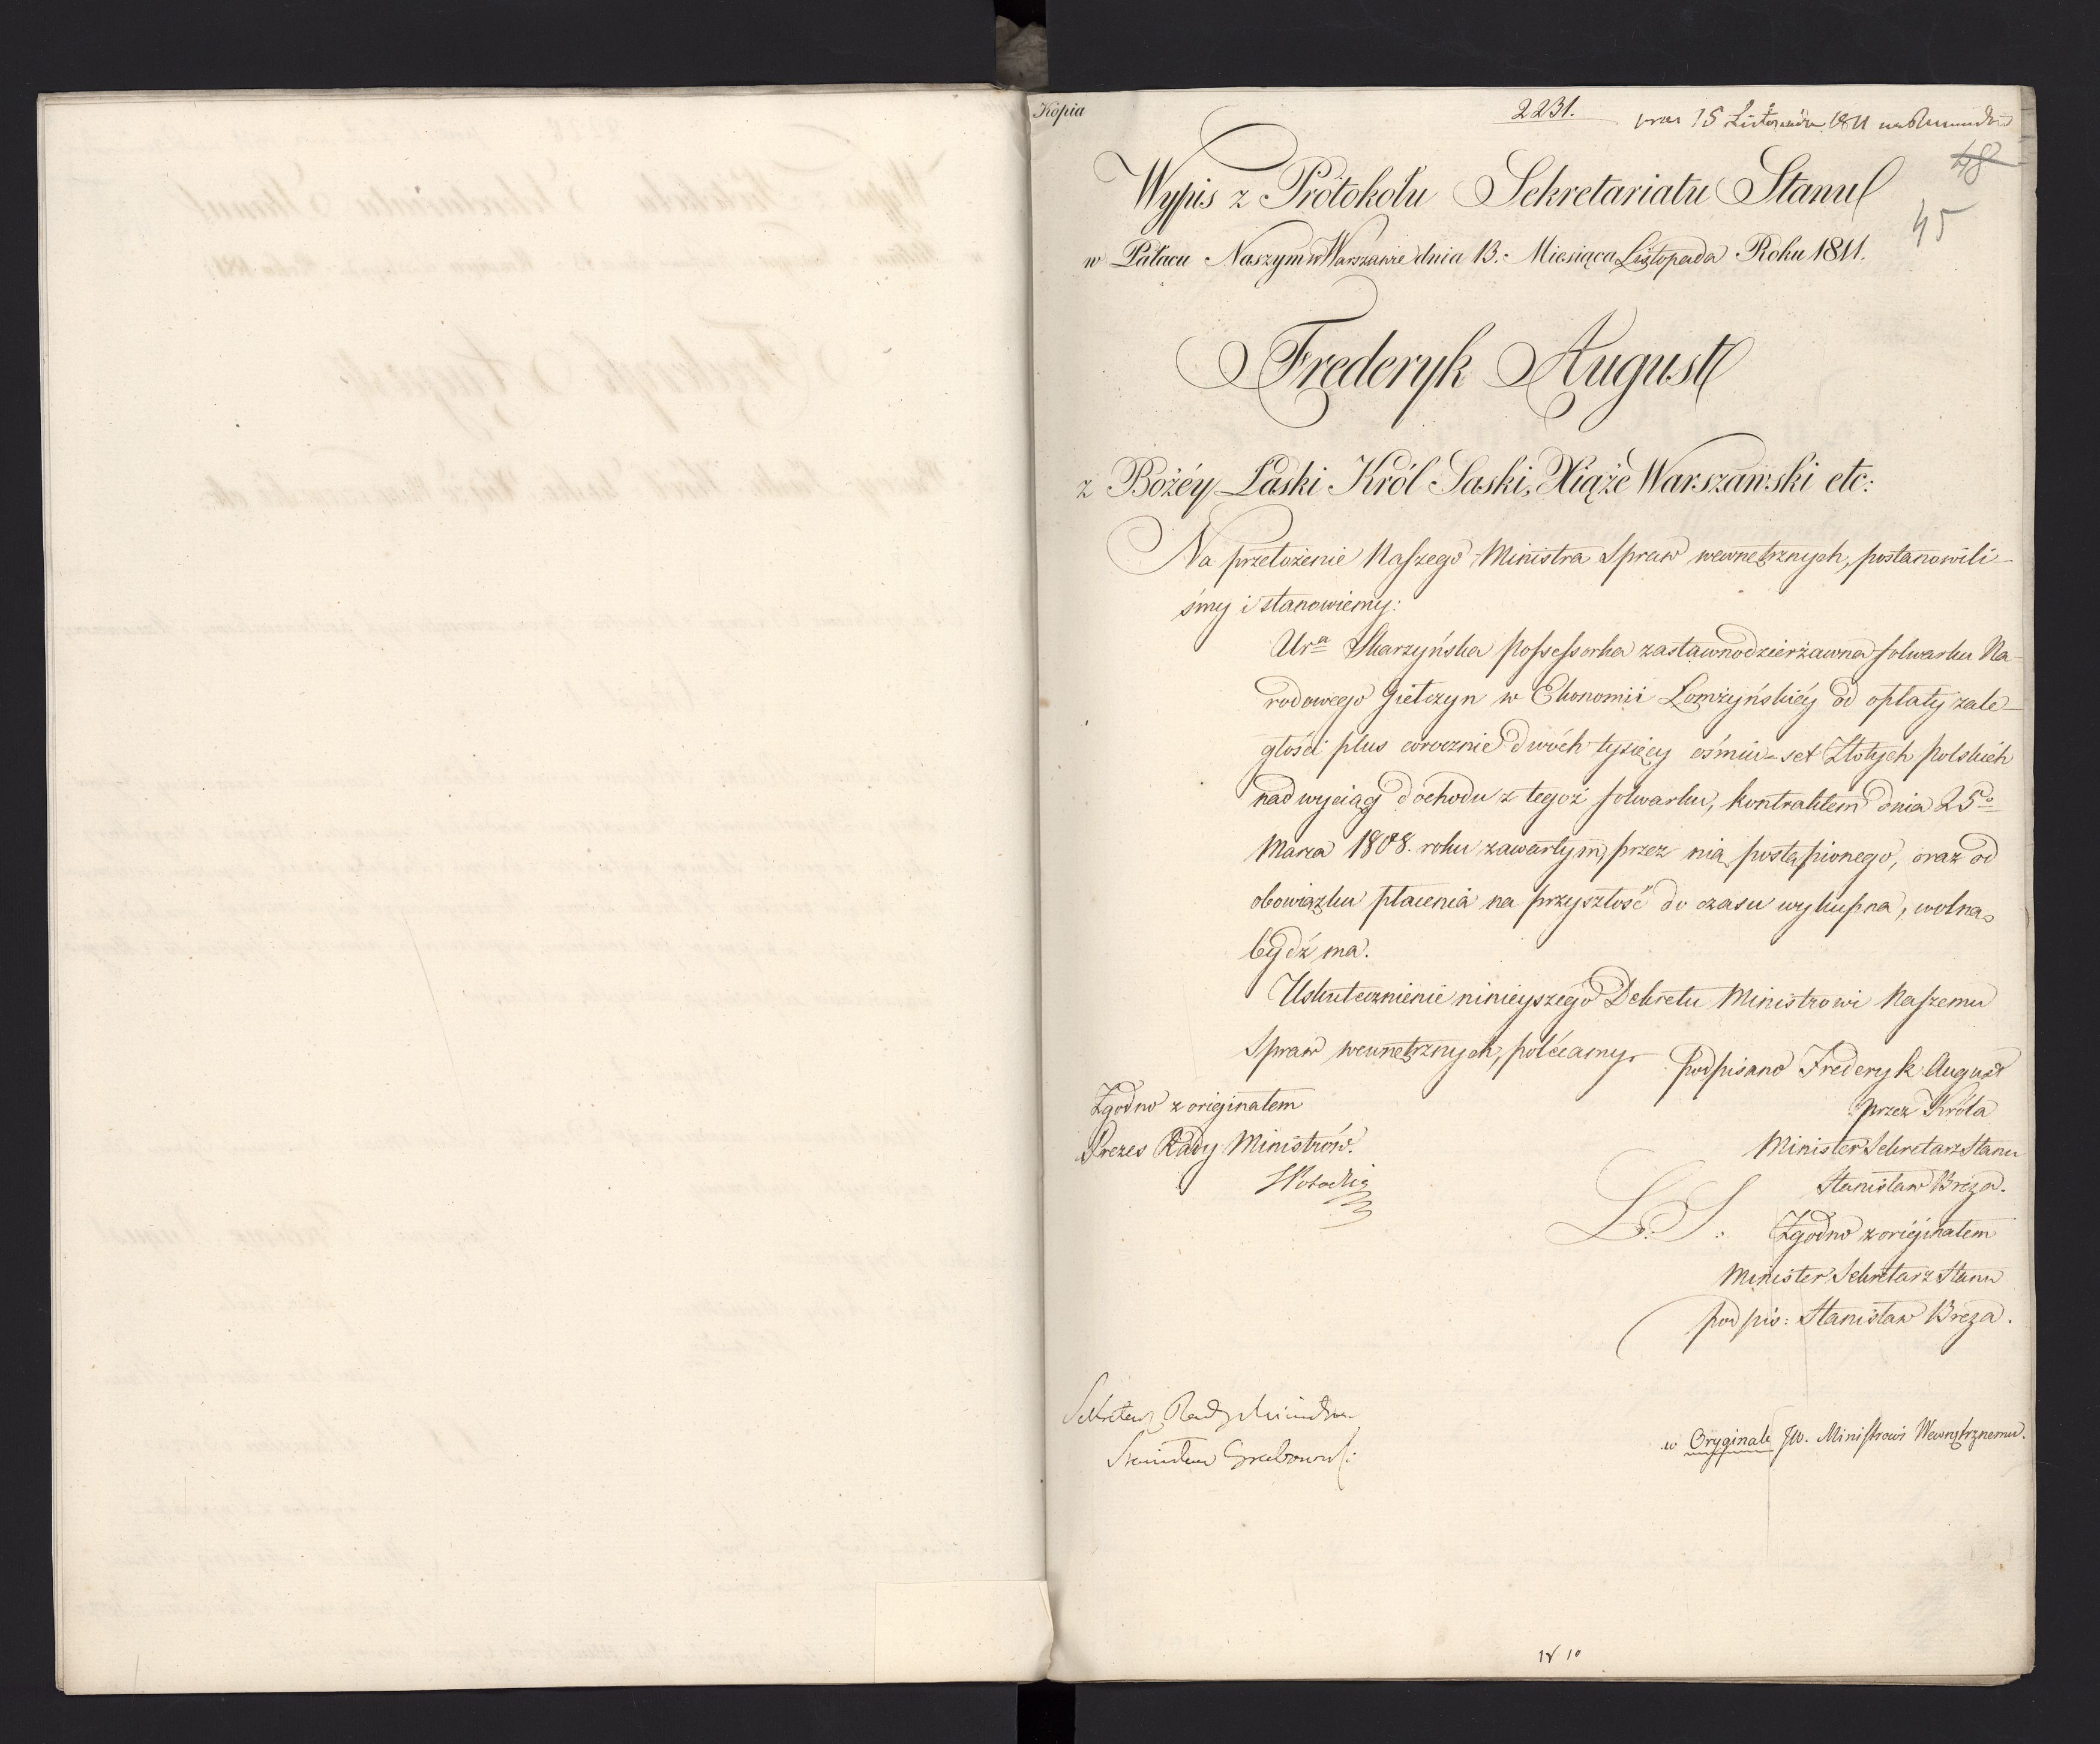 Kopia
2231.
15 Listopada 1811
48
45
Wypis z Protokołu Sekretariatu Stanu
w Pałacu Naszym w Warszawie dnia 13. Miesiąca Listopada Roku 1811.
Frederyk August
z Bożéy Łaski Król Saski, Xiąże Warszawski etc:
Na przełożenie Naszego Ministra Spraw wewnętrznych, postanowili-
śmy i stanowiemy:
Ura Skarzyńska possessorka zastawnodzierżawna folwarku Na-
rodowego Giełczyn w Ekonomii Łomżyńskiéy od opłaty zale-
głości plus corocznie dwóch tysięcy ośmiu-set Złotych polskich
nad wyciąg dochodu z tegoż folwarku, kontraktem dnia 25o
Marca 1808. roku zawartym, przez nią postąpionego, oraz od
obowiązku płacenia na przyszłość do czasu wykupna, wolną
bydź ma.
Uskutecznienie ninieyszego Dekretu Ministrowi Naszemu
Spraw wewnętrznych, polécamy.
podpisano Frederyk August
Zgodno z originałem
przez Króla
Prezes Rady Ministrów.
Minister Sekretarz Stanu
Stanisław Breza.
L. S:
Zgodno z originałem
Minister Sekretarz Stanu
podpis: Stanisław Breza.
Sekretarz Rady Ministrów
Stanisław Grabowski
w Oryginale JW. Ministrowi Wewnętrznemu.